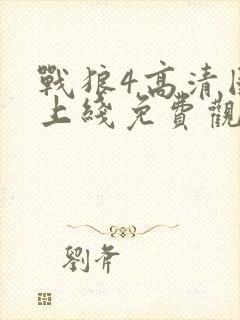 戰狼4高清
上綫免費觀
劉斧